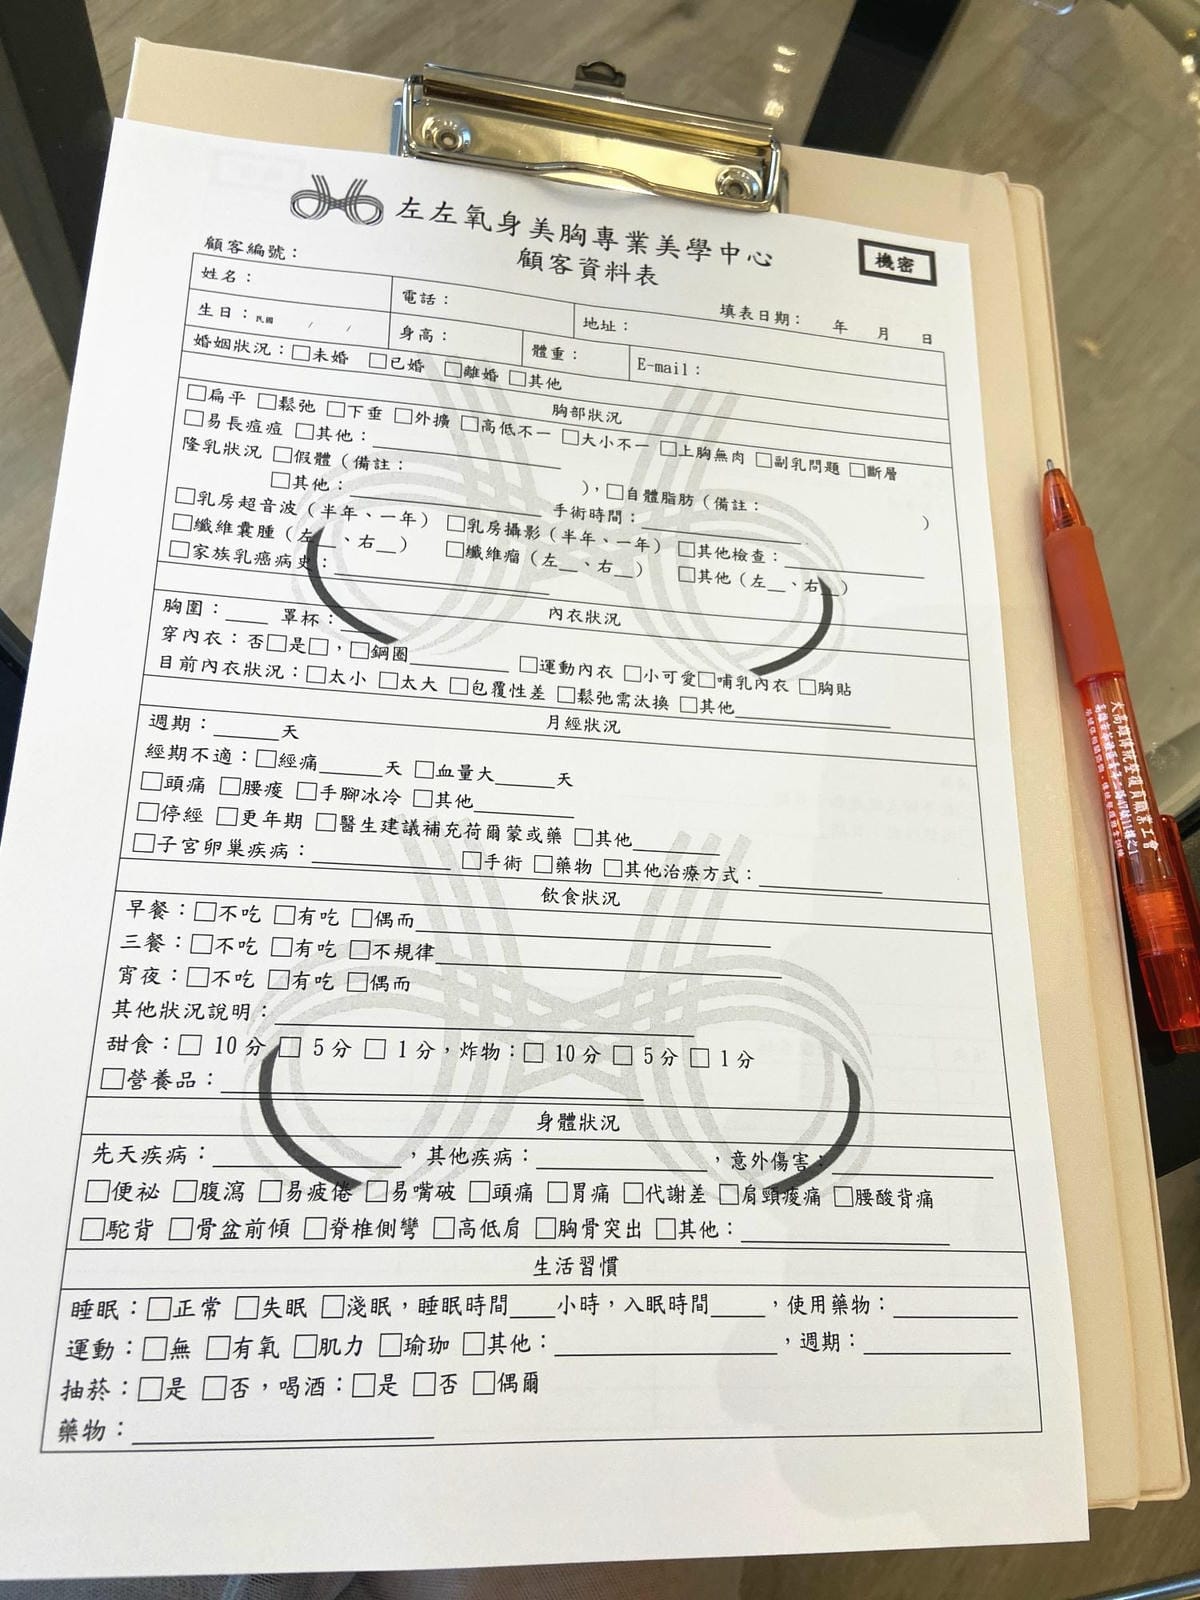 左左氧身美胸專業美學中心
顧客資料表
機密
顧客編號：
填表日期： 年 月 日
姓名： 電話： 地址：
生日：民國 / / 身高： 體重： E-mail：
婚姻狀況：□未婚 □已婚 □離婚 □其他
胸部狀況
□扁平 □鬆弛 □下垂 □外擴 □高低不一 □大小不一 □上胸無肉 □副乳問題 □斷層
□易長痘痘 □其他：
隆乳狀況 □假體（備註： ），□自體脂肪（備註： ）
□其他： 手術時間：
□乳房超音波（半年、一年） □乳房攝影（半年、一年） □其他檢查：
□纖維囊腫（左__、右__） □纖維瘤（左__、右__） □其他（左__、右__）
□家族乳癌病史：
內衣狀況
胸圍：____ 罩杯：____
穿內衣：否□是□，□鋼圈________ □運動內衣 □小可愛□哺乳內衣 □胸貼
目前內衣狀況：□太小 □太大 □包覆性差 □鬆弛需汰換 □其他________
月經狀況
週期：______天
經期不適：□經痛_____天 □血量大_____天
□頭痛 □腰痠 □手腳冰冷 □其他________
□停經 □更年期 □醫生建議補充荷爾蒙或藥 □其他________
□子宮卵巢疾病：________ □手術 □藥物 □其他治療方式：________
飲食狀況
早餐：□不吃 □有吃 □偶而________
三餐：□不吃 □有吃 □不規律________
宵夜：□不吃 □有吃 □偶而
其他狀況說明：________
甜食：□ 10分 □ 5分 □ 1分，炸物：□ 10分 □ 5分 □ 1分
□營養品：________
身體狀況
先天疾病：________，其他疾病：________，意外傷害：________
□便祕 □腹瀉 □易疲倦 □易嘴破 □頭痛 □胃痛 □代謝差 □肩頸痠痛 □腰酸背痛
□駝背 □骨盆前傾 □脊椎側彎 □高低肩 □胸骨突出 □其他：________
生活習慣
睡眠：□正常 □失眠 □淺眠，睡眠時間____小時，入眠時間____，使用藥物：________
運動：□無 □有氧 □肌力 □瑜珈 □其他：________，週期：________
抽菸：□是 □否，喝酒：□是 □否 □偶爾
藥物：________
大高雄傳統整復員職業工會